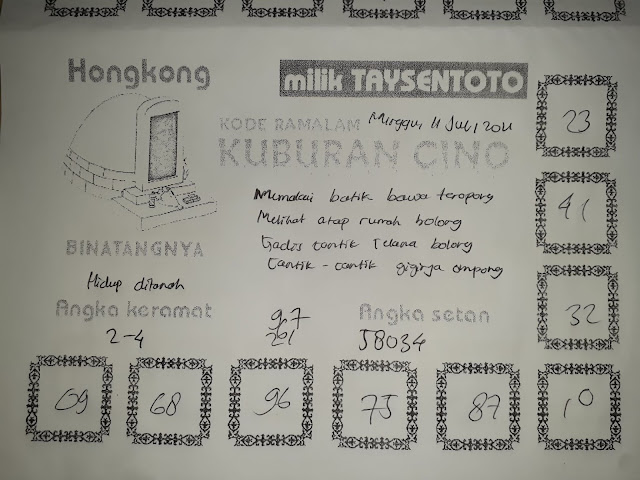 Hongkong
milik TAYSENTOTO
KODE RAMALAM Minggu, 11 Juli 2011
KUBURAN CINO
Memakai batik bawa teropong
Melihat atap rumah bolong
Gadis cantik celana bolong
Cantik - cantik giginya ompong
BINATANGNYA
Hidup ditanah
Angka keramat
2-4
97
261
Angka setan
58034
23
41
32
09
68
96
75
87
10